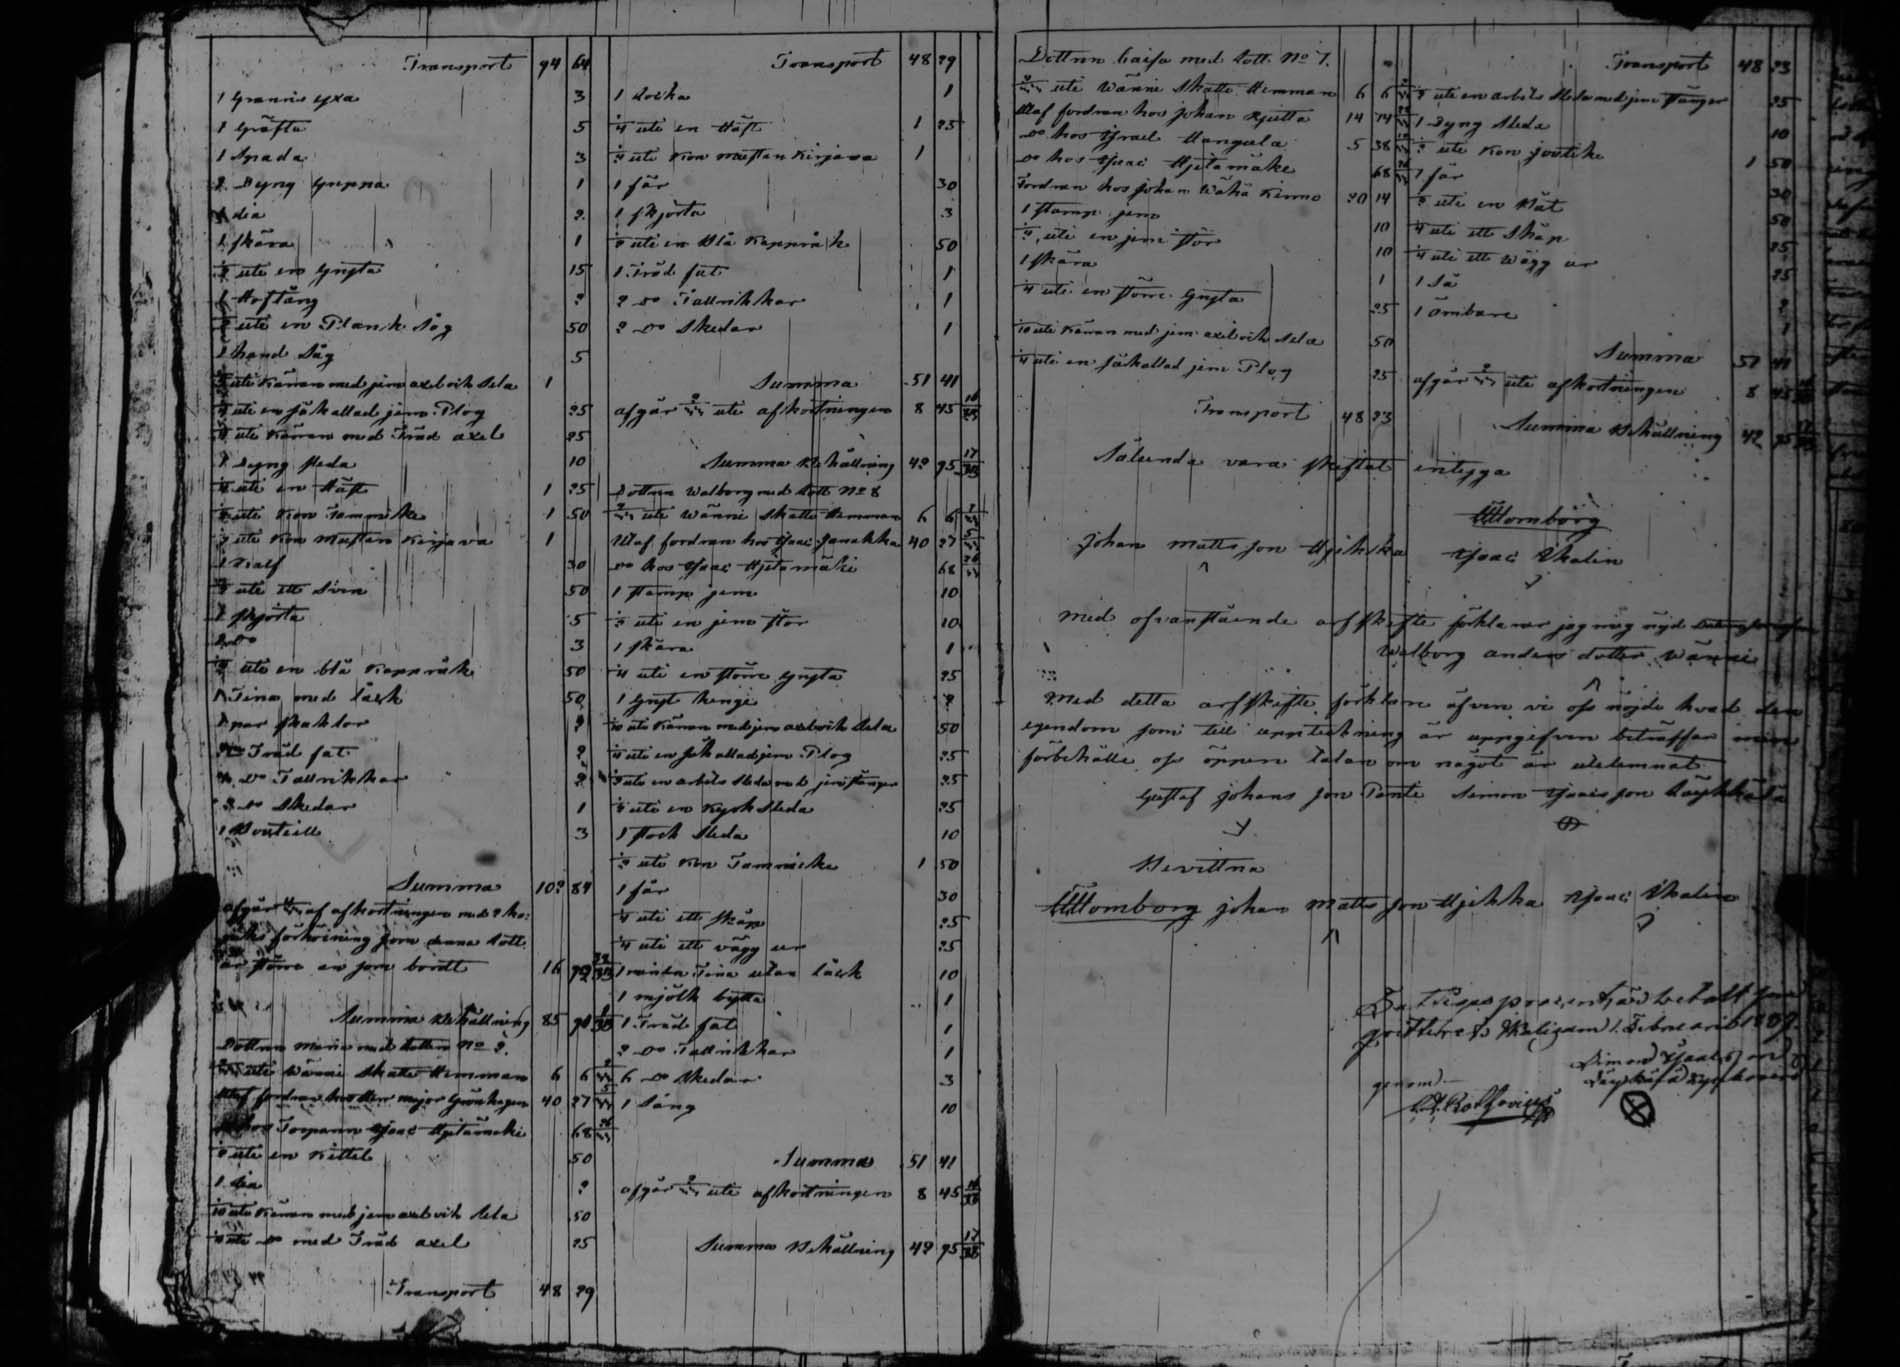 Transport 94 64
1 Grannis yxa 3
1 Gräfta 5
1 Spada 3
2 Dyng Greppa 1
1 lia 2
1 skära 1
1/2 uti en Gryta 15
1 Hoftång 2
1/2 uti en Plank såg 50
1 hand Såg 5
uti Kärran med jern axel och Sela 1
1/4 uti en så kallad jern Plog 25
1/4 uti Kärran med Träd axel 25
1 Dyng släda 10
1/4 uti en Häst 1 25
1/2 uti Kon Tammike 1 50
1/2 uti Kon Mustan Kirjava 1
1 Kalf 30
1/2 uti ett Svin 50
1 skjorta 5
1 Do 3
1/2 uti en blå Kappråck 50
1 Tina med låck 50
1 par skaklor 2
Träd fat 2
4 Do Tallrikkar 2
3 Do Skedar 1
1 Bouteille 3
Summa 102 84
afgår af afkortningen med
förhöining som denna lott
är större en som bordt 16 92
Summa Behållning 85 91
Dottren Maria med lotten No 2.
uti Wänni Skatte Hemman 6 6
Utaf fordran hos Herr major Grönhagen 40 27
Do hos Torparen Isaac Hjetamäki 68
1/2 uti en Kittel 50
1 lia 2
1/10 uti Kärran med jern axel och Sela 50
1/4 uti Do med Träd axel 25
Transport 48 29
Transport 48 29
1 Locka 1
1/4 uti en Häst 1 25
1/2 uti Kon Mustan Kirjava 1
1 får 30
1 skjorta 3
1/2 uti en Blå Kappråck 50
1 Träd fat 1
2 Do Tallrikkar 1
2 Do Skedar 1
Summa 51 41
afgår 2 uti afkortningen 8 45 16/33
Summa Behållning 42 95 17/33
Dottren Walborg med Lott No 8
uti Wänni Skatte Hemman 6 6
Utaf fordran hos Isaac Janakka 40 27
Do hos Isaac Hjetamäki 68
1 stamp jern 10
1/2 uti en jern stör 10
1 skära 1
1/4 uti en större gryta 25
1 Gryt henge 2
1/10 uti Kärran med jern axel och Sela 50
1/4 uti en så kallad jern Plog 25
1/2 uti en arbets släda med jern stänger 25
1/4 uti en Kyrk Sleda 25
1 stock Sleda 10
1/2 uti Kon Tammike 1 50
1 får 30
1/4 uti ett skåp 25
1/4 uti ett vägg ur 25
1 mindre Tina utan låck 10
1 mjölk bytta 1
1 Träd fat 1
2 Do Tallrikkar 1
6 Do Skedar 3
1 Säng 10
Summa 51 41
afgår 2 uti afkortningen 8 45 16/33
Summa Behållning 42 95 17/33
Dottren Caisa med Lott No 7.
uti Wänni Skatte Hemman 6 6
Utaf fordran hos Johan 14 14
Do hos Israel Mangula 5 38
Do hos Isaac Hjetamäke 68
Fordran hos Johan Wähä Kimo 20 14
1 stamp jern 10
1/2 uti en jern stör 10
1 skära 1
1/4 uti en större Gryta 25
1/10 uti Kärran med jern axel och Sela 50
1/4 uti en så kallad jern Plog 25
Transport 48 23
Transport 48 23
1/2 uti en arbets Sleda med jern stänger 25
1 Dyng Sleda 10
1/2 uti Kon Joutike 1 50
1 får 30
1/2 uti en Båt 50
1/4 uti ett Skåp 25
1/4 uti ett Wägg ur 25
1 Så 2
1 ömbare 1
Summa 51 41
afgår 2 uti afkortningen 8 45
Summa Behållning 42 95 17/33
Sålunda vara skiftat intyga
Johan Matts son Isaac Skalin
Med ofvanstående arfskifte förklarar jag mig nöjd
Walborg Anders dotter Wänni
Med detta arfskifte förklare äfven vi oss nöjde hvad den
egendom som till uppteckning är uppgifven beträffar men
förbehålle oss öppen talan om något är utelemnat
Gustaf Johans son Pente Simon Isacs son
Bevittna
Johan Matts son Isaac Skalin
betalt
Februarii
Simon Isacs son
genom